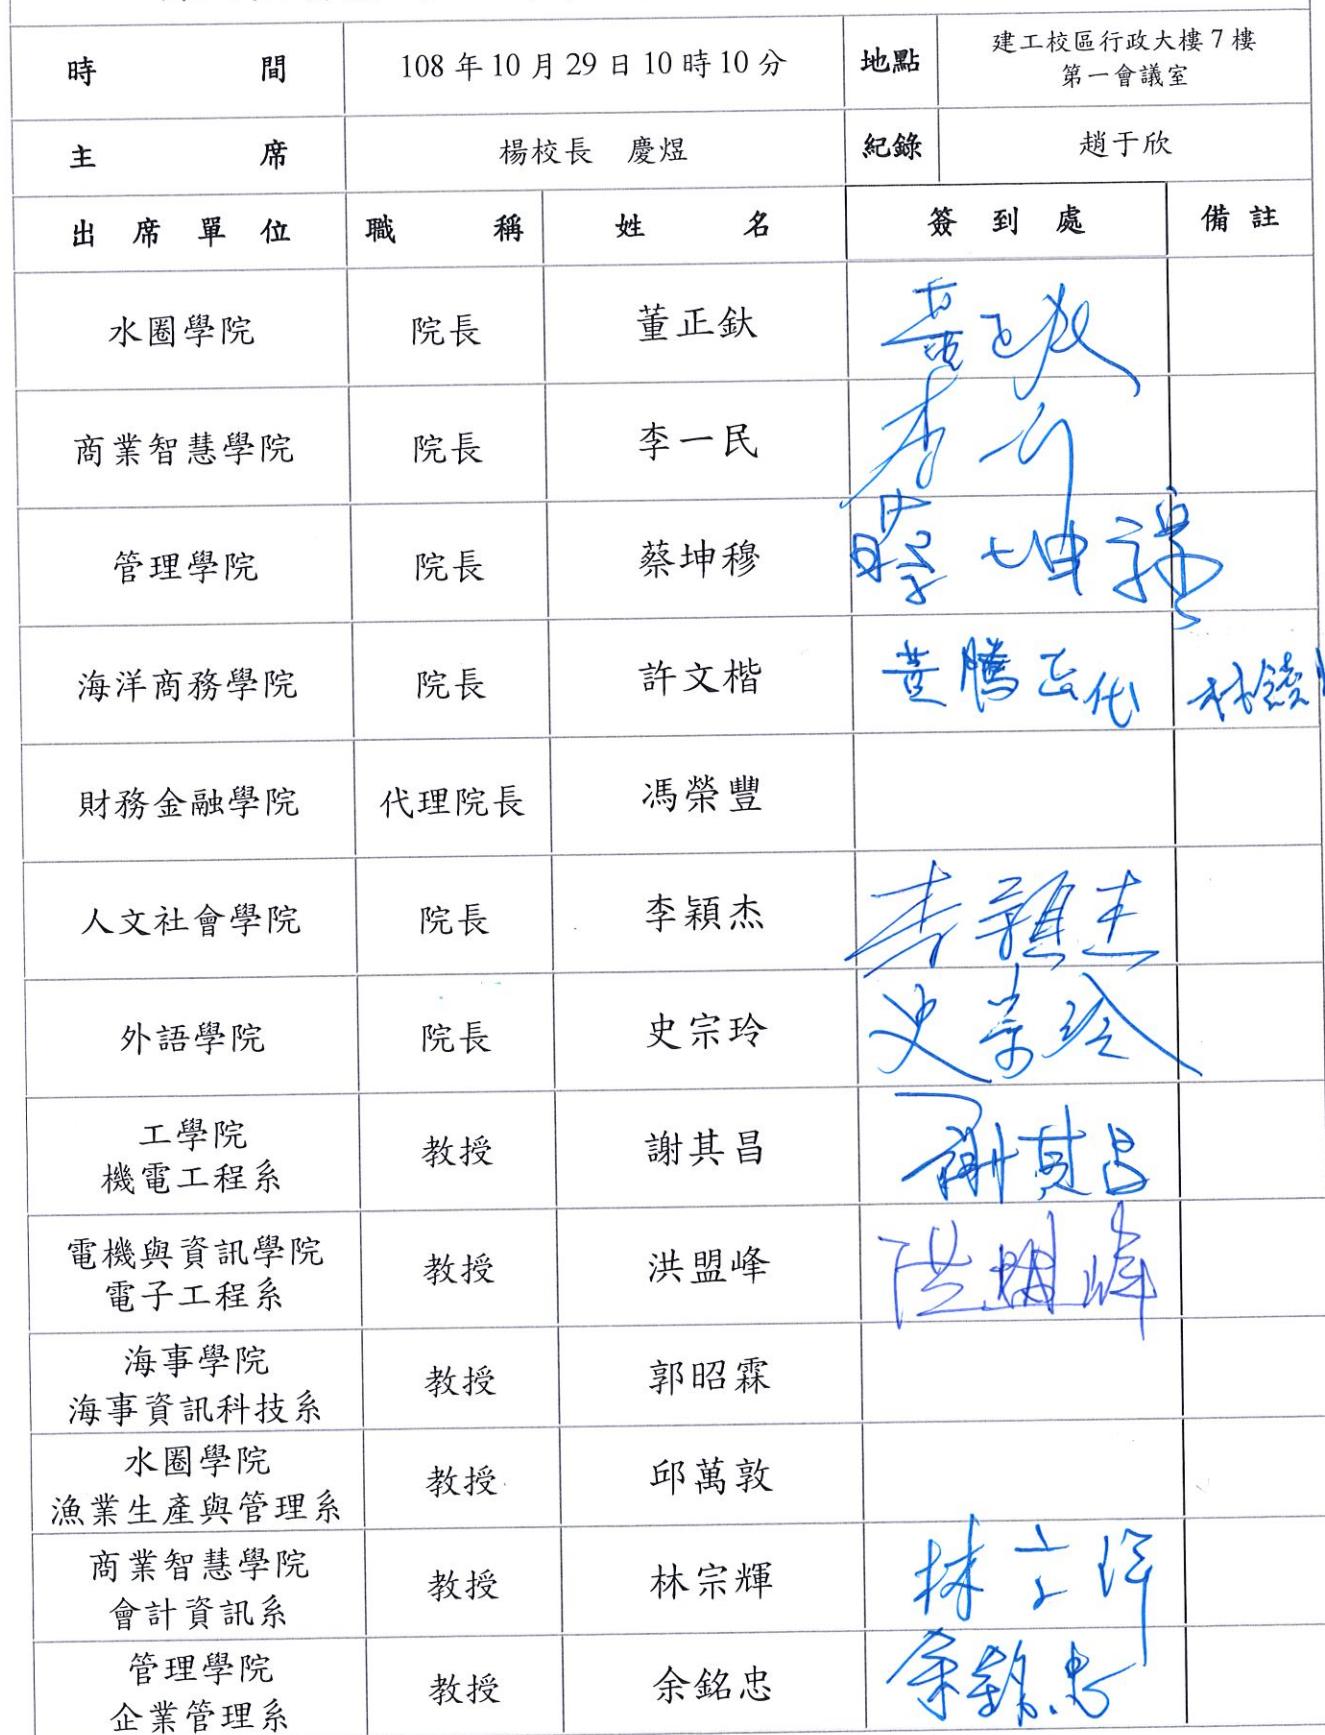 時 間 108 年 10 月 29 日 10 時 10 分 地點 建工校區行政大樓 7 樓
第一會議室
主 席 楊校長 慶煜 紀錄 趙于欣
出 席 單 位 職 稱 姓 名 簽 到 處 備 註
水圈學院 院長 董正釱
商業智慧學院 院長 李一民
管理學院 院長 蔡坤穆 蔡坤穆
海洋商務學院 院長 許文楷 黃騰 代
財務金融學院 代理院長 馮榮豐
人文社會學院 院長 李穎杰 李穎杰
外語學院 院長 史宗玲 史宗玲
工學院
機電工程系 教授 謝其昌 謝其昌
電機與資訊學院
電子工程系 教授 洪盟峰 洪盟峰
海事學院
海事資訊科技系 教授 郭昭霖
水圈學院
漁業生產與管理系 教授 邱萬敦
商業智慧學院
會計資訊系 教授 林宗輝 林宗輝
管理學院
企業管理系 教授 余銘忠 余銘忠